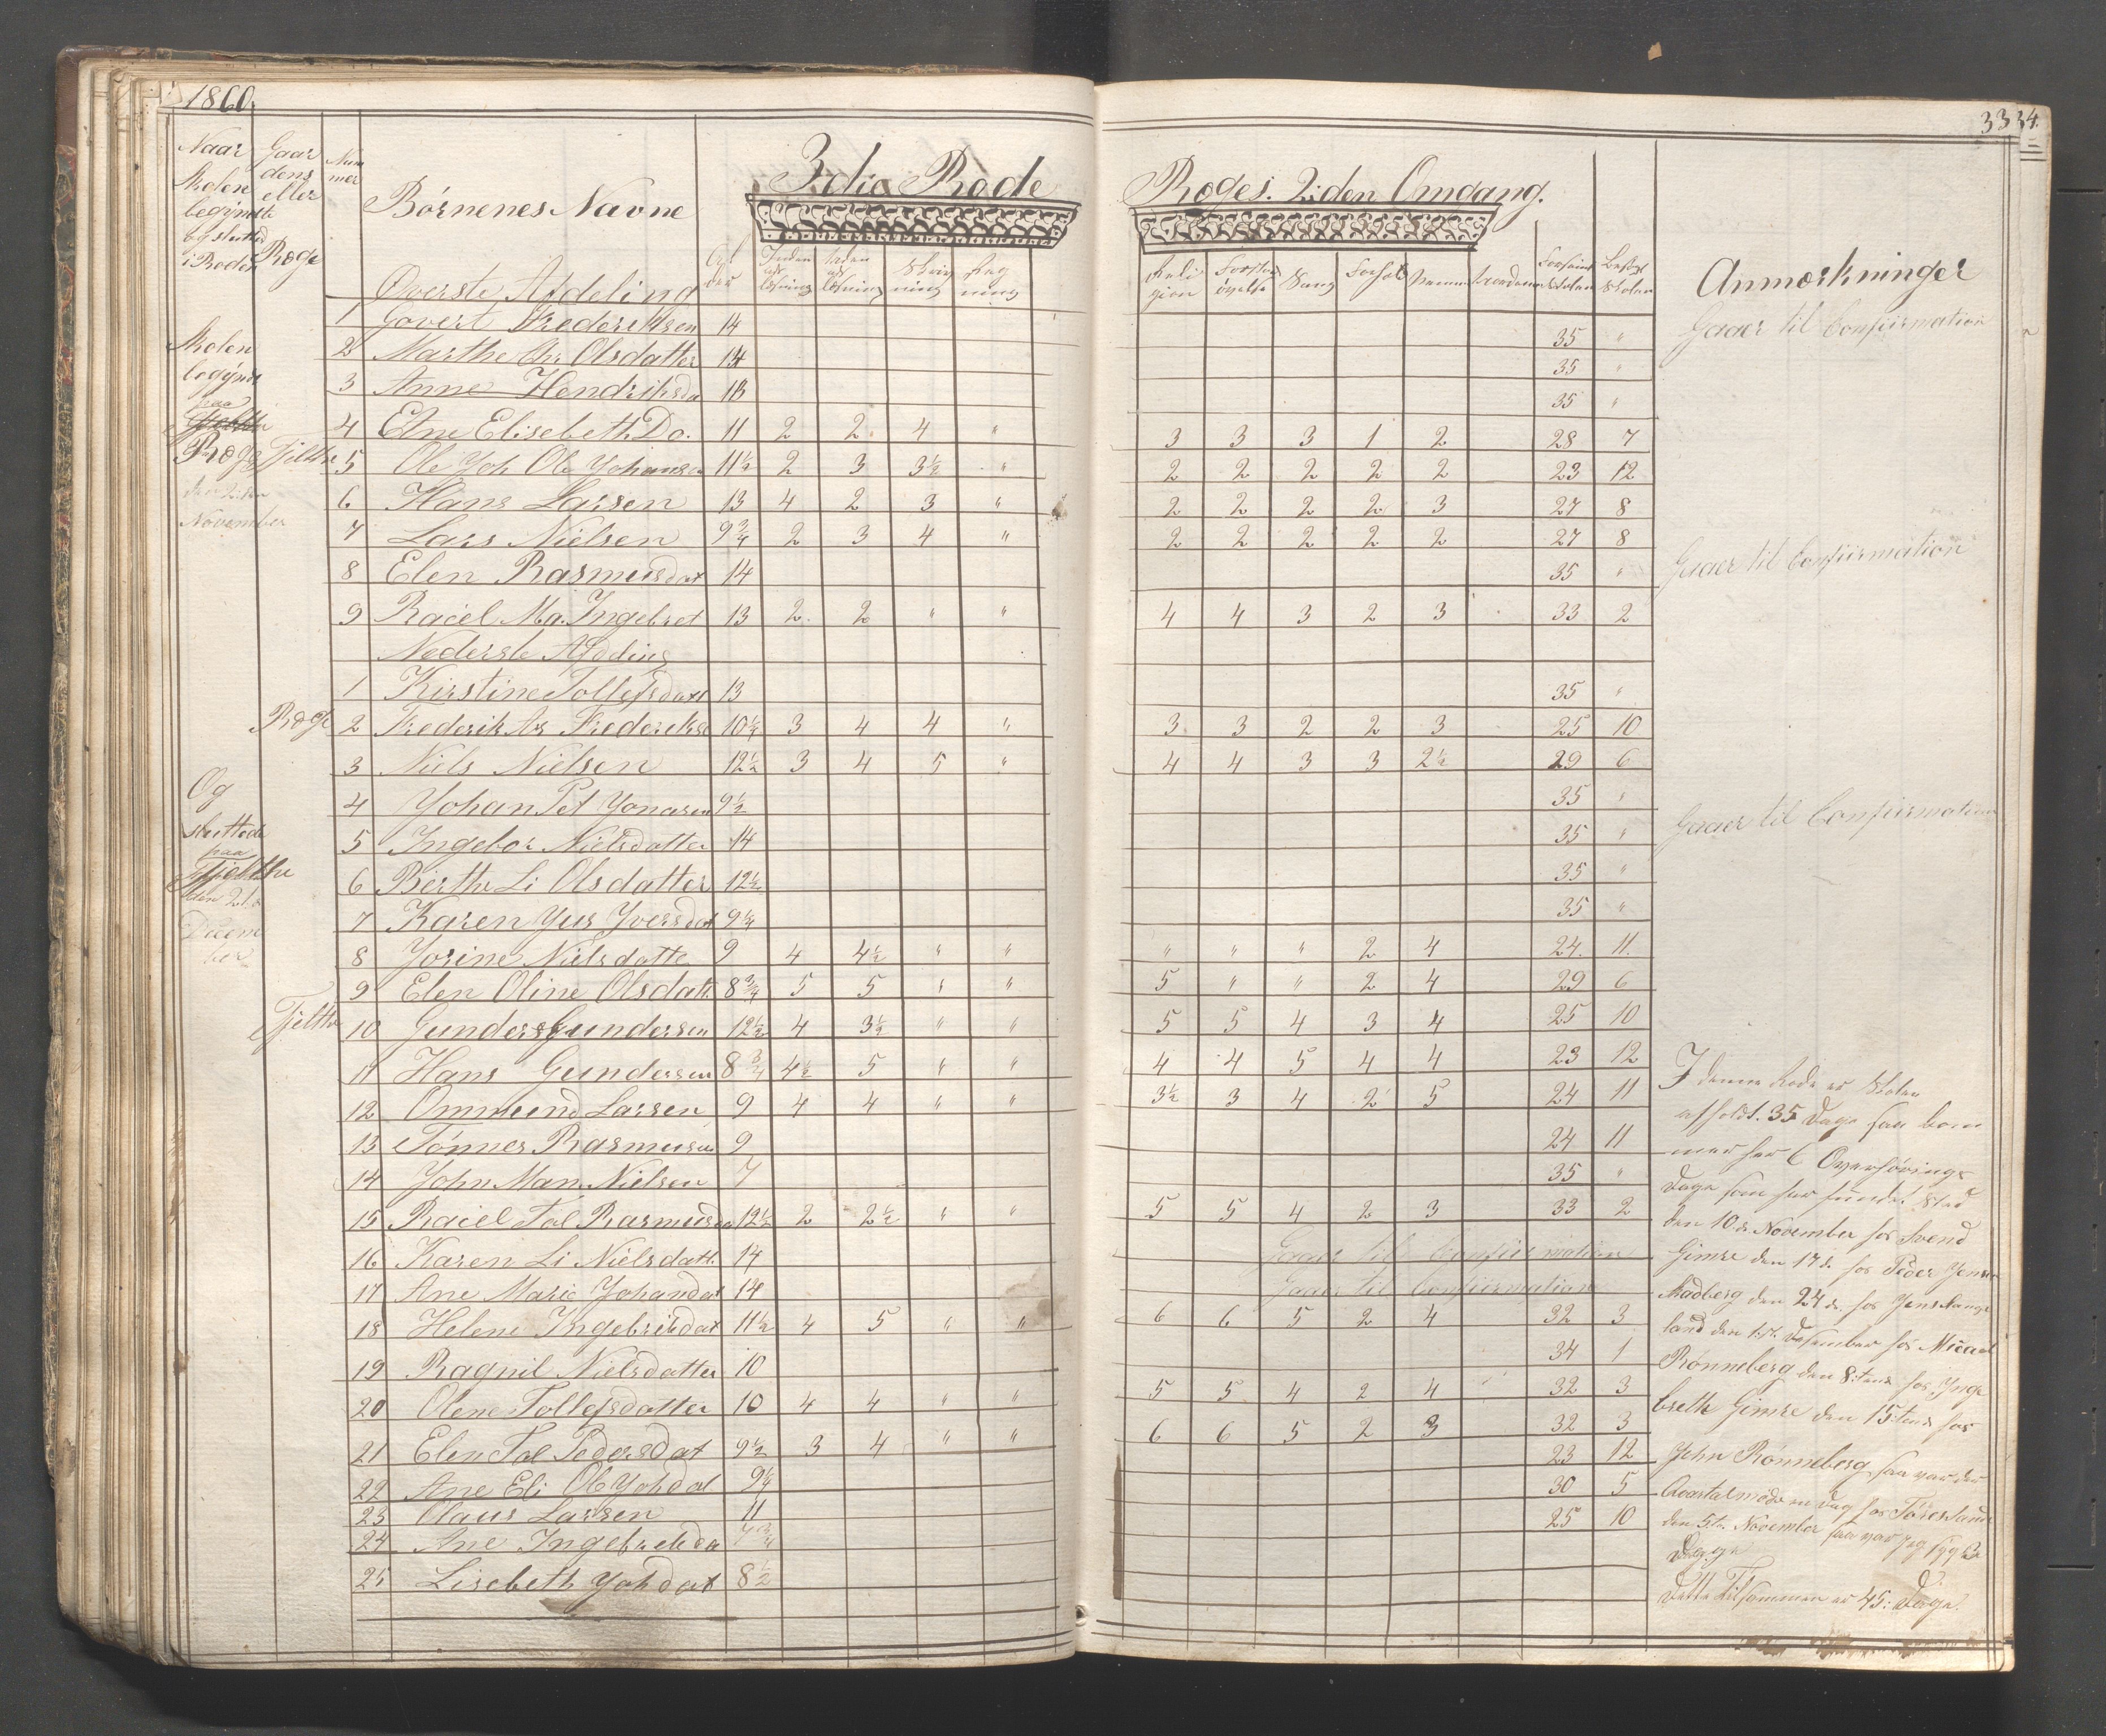 1860.
33 34.
3die Rode Røges. 2:den Omgang.
Naar Skolen begyndte og sluttede i Roden
Gaardens eller Røge
Nummer
Børnenes Navne
Alder
Inden ad Læsning
Uden ad Læsning
Skrivning
Regning
Religion
Sang
Forhold
Nemme
Forsømt Skolen
Besøgt Skolen
Anmærkninger
Øverste Afdeling
1 Govert Frederiksen 14 35 " Gaaer til Confiirmation
2 Marthe Chr Olsdatter 14 35 "
3 Anne Hendriksda 13 35 "
4 Elne Elisebeth Do. 11 2 2 4 " 3 3 3 1 2 28 7
5 Ole Joh Ols Yohansen 11½ 2 3 3½ " 2 2 2 2 2 23 12
6 Hans Larsen 13 4 2 3 " 2 2 2 2 3 27 8
7 Lars Nielsen 9¾ 2 3 4 " 2 2 2 2 2 27 8
8 Elen Rasmusdat 14 35 " Gaaer til Confiirmation
9 Raciel Ma. Ingebret 13 2 2 " " 4 4 3 2 3 33 2
Skolen begynde paa Røge
Fjelthe
den 2:den November
Nederste Afdeling
1 Kirstine Tollefsdatt 13 35 "
Røge 2 Frederik As Frederikse 10½ 3 4 4 " 3 3 2 2 3 25 10
3 Niels Nielsen 12½ 3 4 5 " 4 4 3 3 2½ 29 6
4 Yohan Pet Yonasen 9½ 35 "
5 Ingebor Nielsdatter 14 35 " Gaaer til Confiirmation
6 Berthe Li Olsdatter 12½ 35 "
7 Karen Yus Yversdat 9¼ 35 "
8 Yorine Nielsdatte 9 4 4½ " " " " " 2 4 24. 11.
9 Elen Oline Olsdatt. 8¾ 5 5 " " 5 " " 2 4 29 6
Fjelthe 10 Gunder Gundersen 12½ 4 3½ " " 5 5 4 3 4 25 10
11 Hans Gundersen 8¾ 4½ 5 " " 4 4 5 4 4 23 12
12 Ommund Larsen 9 4 4 " " 3½ 3 4 2 5 24 11
13 Tønnes Rasmusen 9 24 11
14 John Man. Nielsen 7 35 "
15 Raciel Tol Rasmusda 12½ 2 2½ " " 5 5 4 2 3 33 2
16 Karen Li Nielsdatt. 14 Gaaer til Confiirmation
17 Ane Marie Yohandat 14 Gaaer til Confiirmation
18 Helene Ingebritdat 11½ 4 5 " " 6 6 5 2 4 32 3
19 Ragnil Nielsdatter 10 34 1
20 Olene Tollefsdatter 10 4 4 " " 5 5 4 2 4 32 3
21 Elen Tol Pedersdat 9½ 3 4 " " 6 6 5 2 3 32 3
22 Ane Eli Ols Yohdat 9¼ 23 12
23 Olaus Larsen 11 30 5
24 Ane Ingebretsda 7¾ 25 10
25 Lisebeth Yohdat 8½
Og sluttede paa Fjelthe
den 21.
Decem
ber
I denne Rode er Skolen
afholdt. 35 Dage saa kom
mer her 6 Overhørings
Dage som har fundet Sted
den 10de November hos Svend
Gimre den 17de hos Peder Jensen
Madberg den 24de hos Jens Hauge
land den 1ste Desember hos Micael
Rønneberg den 8:tende hos Inge
breth Gimre den 15tende hos
John Rønneberg saa var der
Qvartalmøde en Dag hos Tøres Sande
den 5te November saa var jeg syg 3
Dage
Dette Tilsammen er 45: Dage.